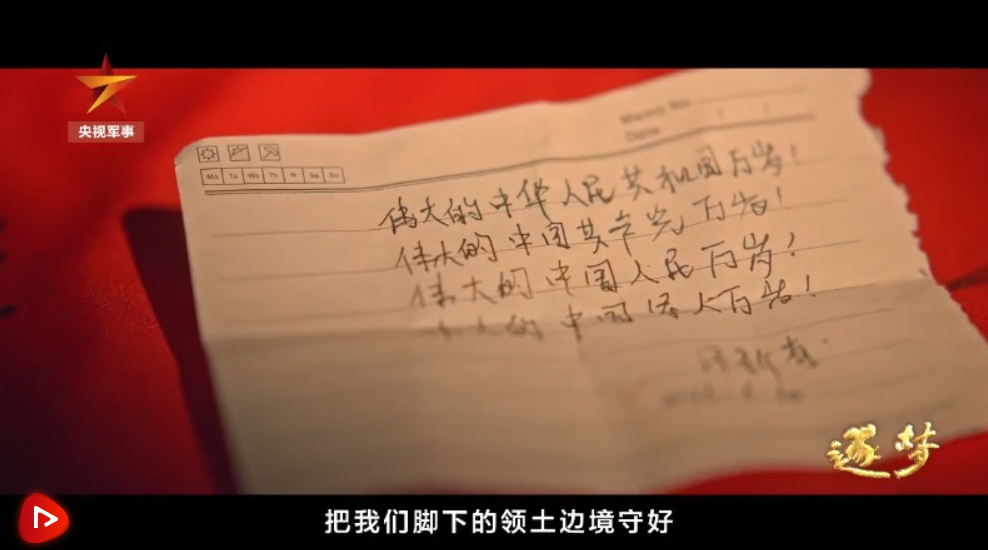 央视军事
Memo No.
Date
Mo Tu We Th Fr Sa Su
伟大的中华人民共和国万岁!
伟大的中国共产党万岁!
伟大的中国人民万岁!
大的中国军人万岁!
逐梦
把我们脚下的领土边境守好